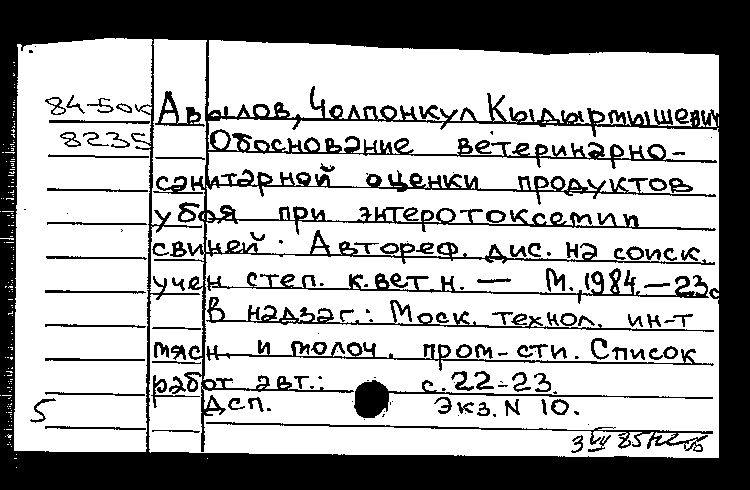 84-5ок Авылов, Чолпонкул Кыдырмышевич
8235 Обоснование ветеринарно-
санитарной оценки продуктов
убоя при энтеротоксемии
свиней: Автореф. дис. на соиск.
учен степ. к.вет.н. — М., 1984.—23с
В надзаг.: Моск. технол. ин-т
мясн. и молоч. пром-сти. Список
работ авт.: с.22-23.
5 Дсп. Экз. N 10.
3 VII 85